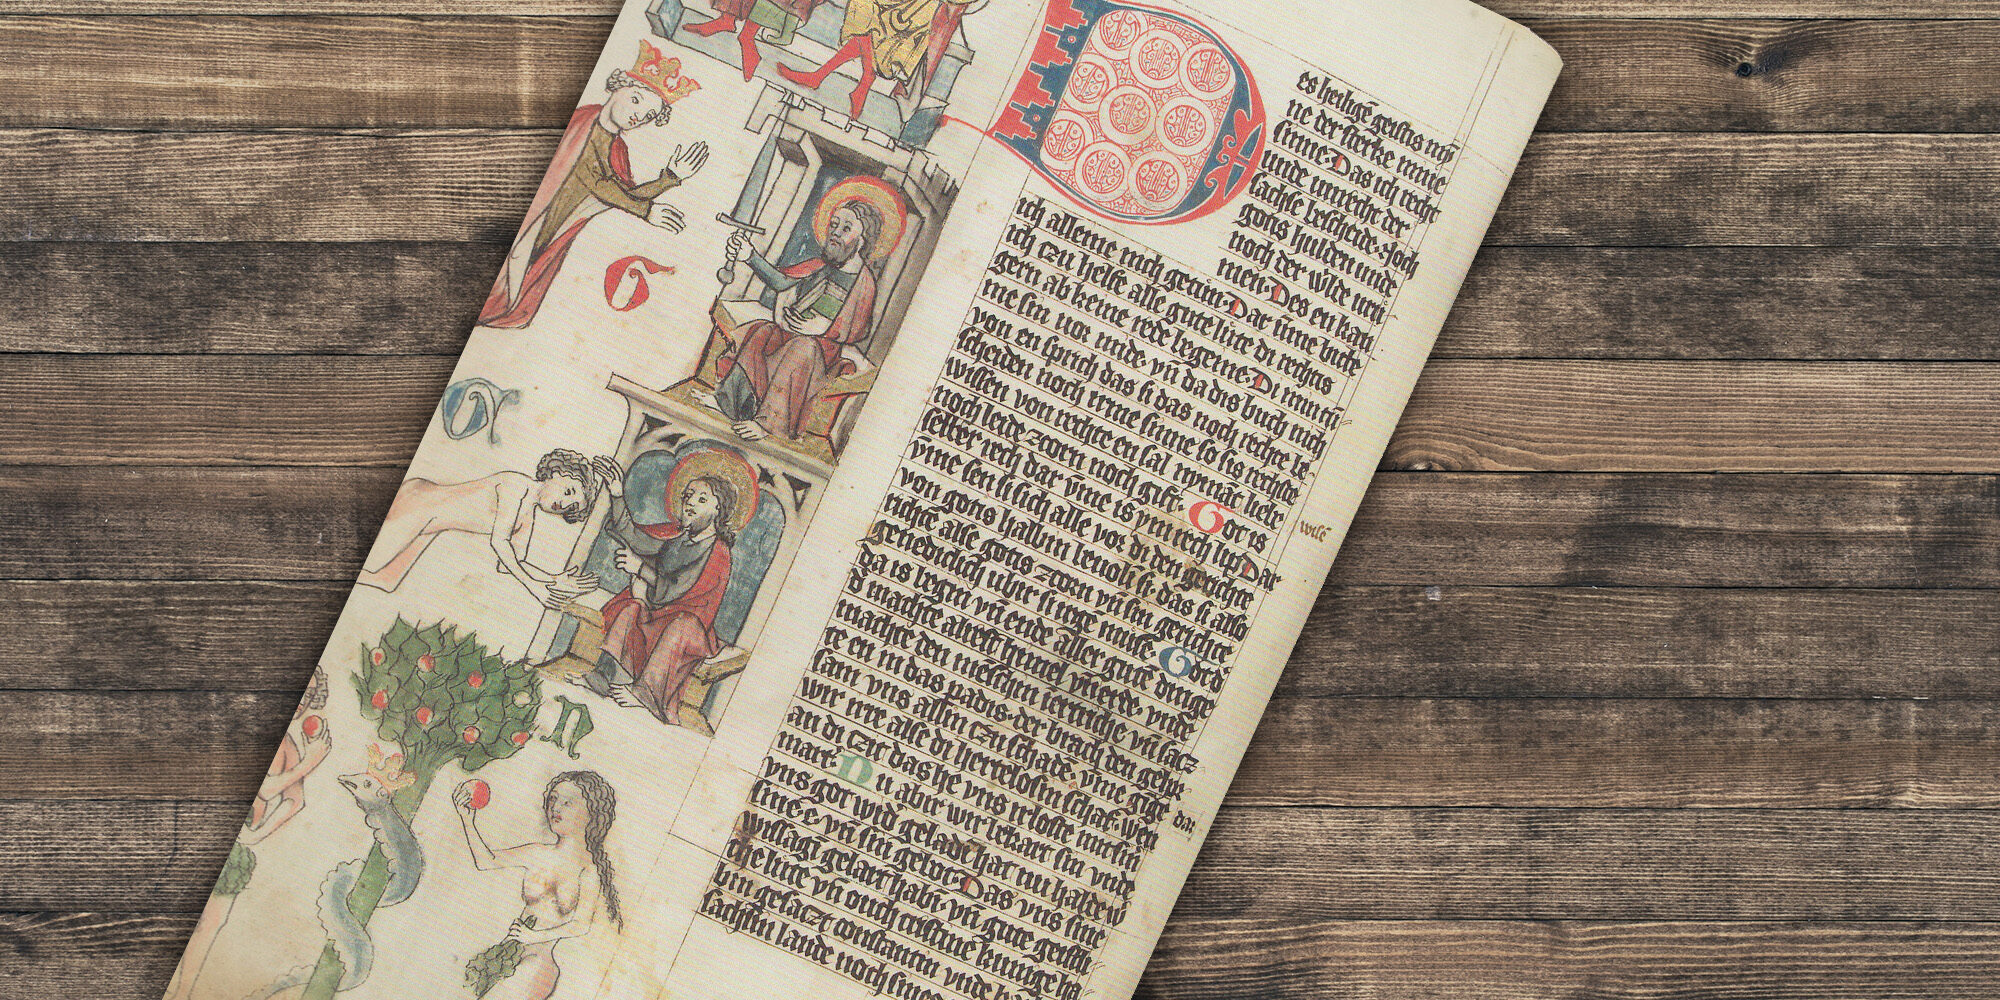 es heiligē geistis mȳ
ne der sterke mine
sinne. Das ich recht
unde unrecht der
sachse bescheide. Noch
gotis hulden unde
noch der w̾lde vrū
men. Des en kan
ich alleine nich getun. Dar ūme bitte
ich czu helfe alle gute lute di rechtis
gern ab keine rede begeine. Di min tū
me sin vor mide. vn̄ da dis buch nich
von en sprich das si das noch rechte be
scheiden noch irme sinne so sis rechte
wissen von rechte en sal nymāt liebe
noch leide zcorn noch gift. Got is
selber rech dar ūme is ym rech lip. Dar
ūme sen si sich alle vor di den gerichte
von gotis halbin bevoln si. das si also
richtē alse gotis zcorn vn̄ sin gerichte
genediclich ubir si irgē muse. Got d'
da is begin vn̄ ende aller gute dinge
d' machte alrest himel vn̄ erde. vnde
machte den mēschin in ertriche vn̄ sacz
te en in das padis. der brach den gehor
sam vns allin czu schadē. vme gige
wir irre alse di hertelosin schaf. wen
an di czit das he vns irloste mit sin'
mart'. Nu abir wir bekart sin vnde
vns got wid' geladē hat nu halde w'
sine e vn̄ sin gebot. Das vns sine
wissagē gelart habī. vn̄ gute geistli
che lute vn̄ ouch cristine kunige ha
bin gesaczt constantin vnde
sachsin lande noch
wissē
dar
G
G
N